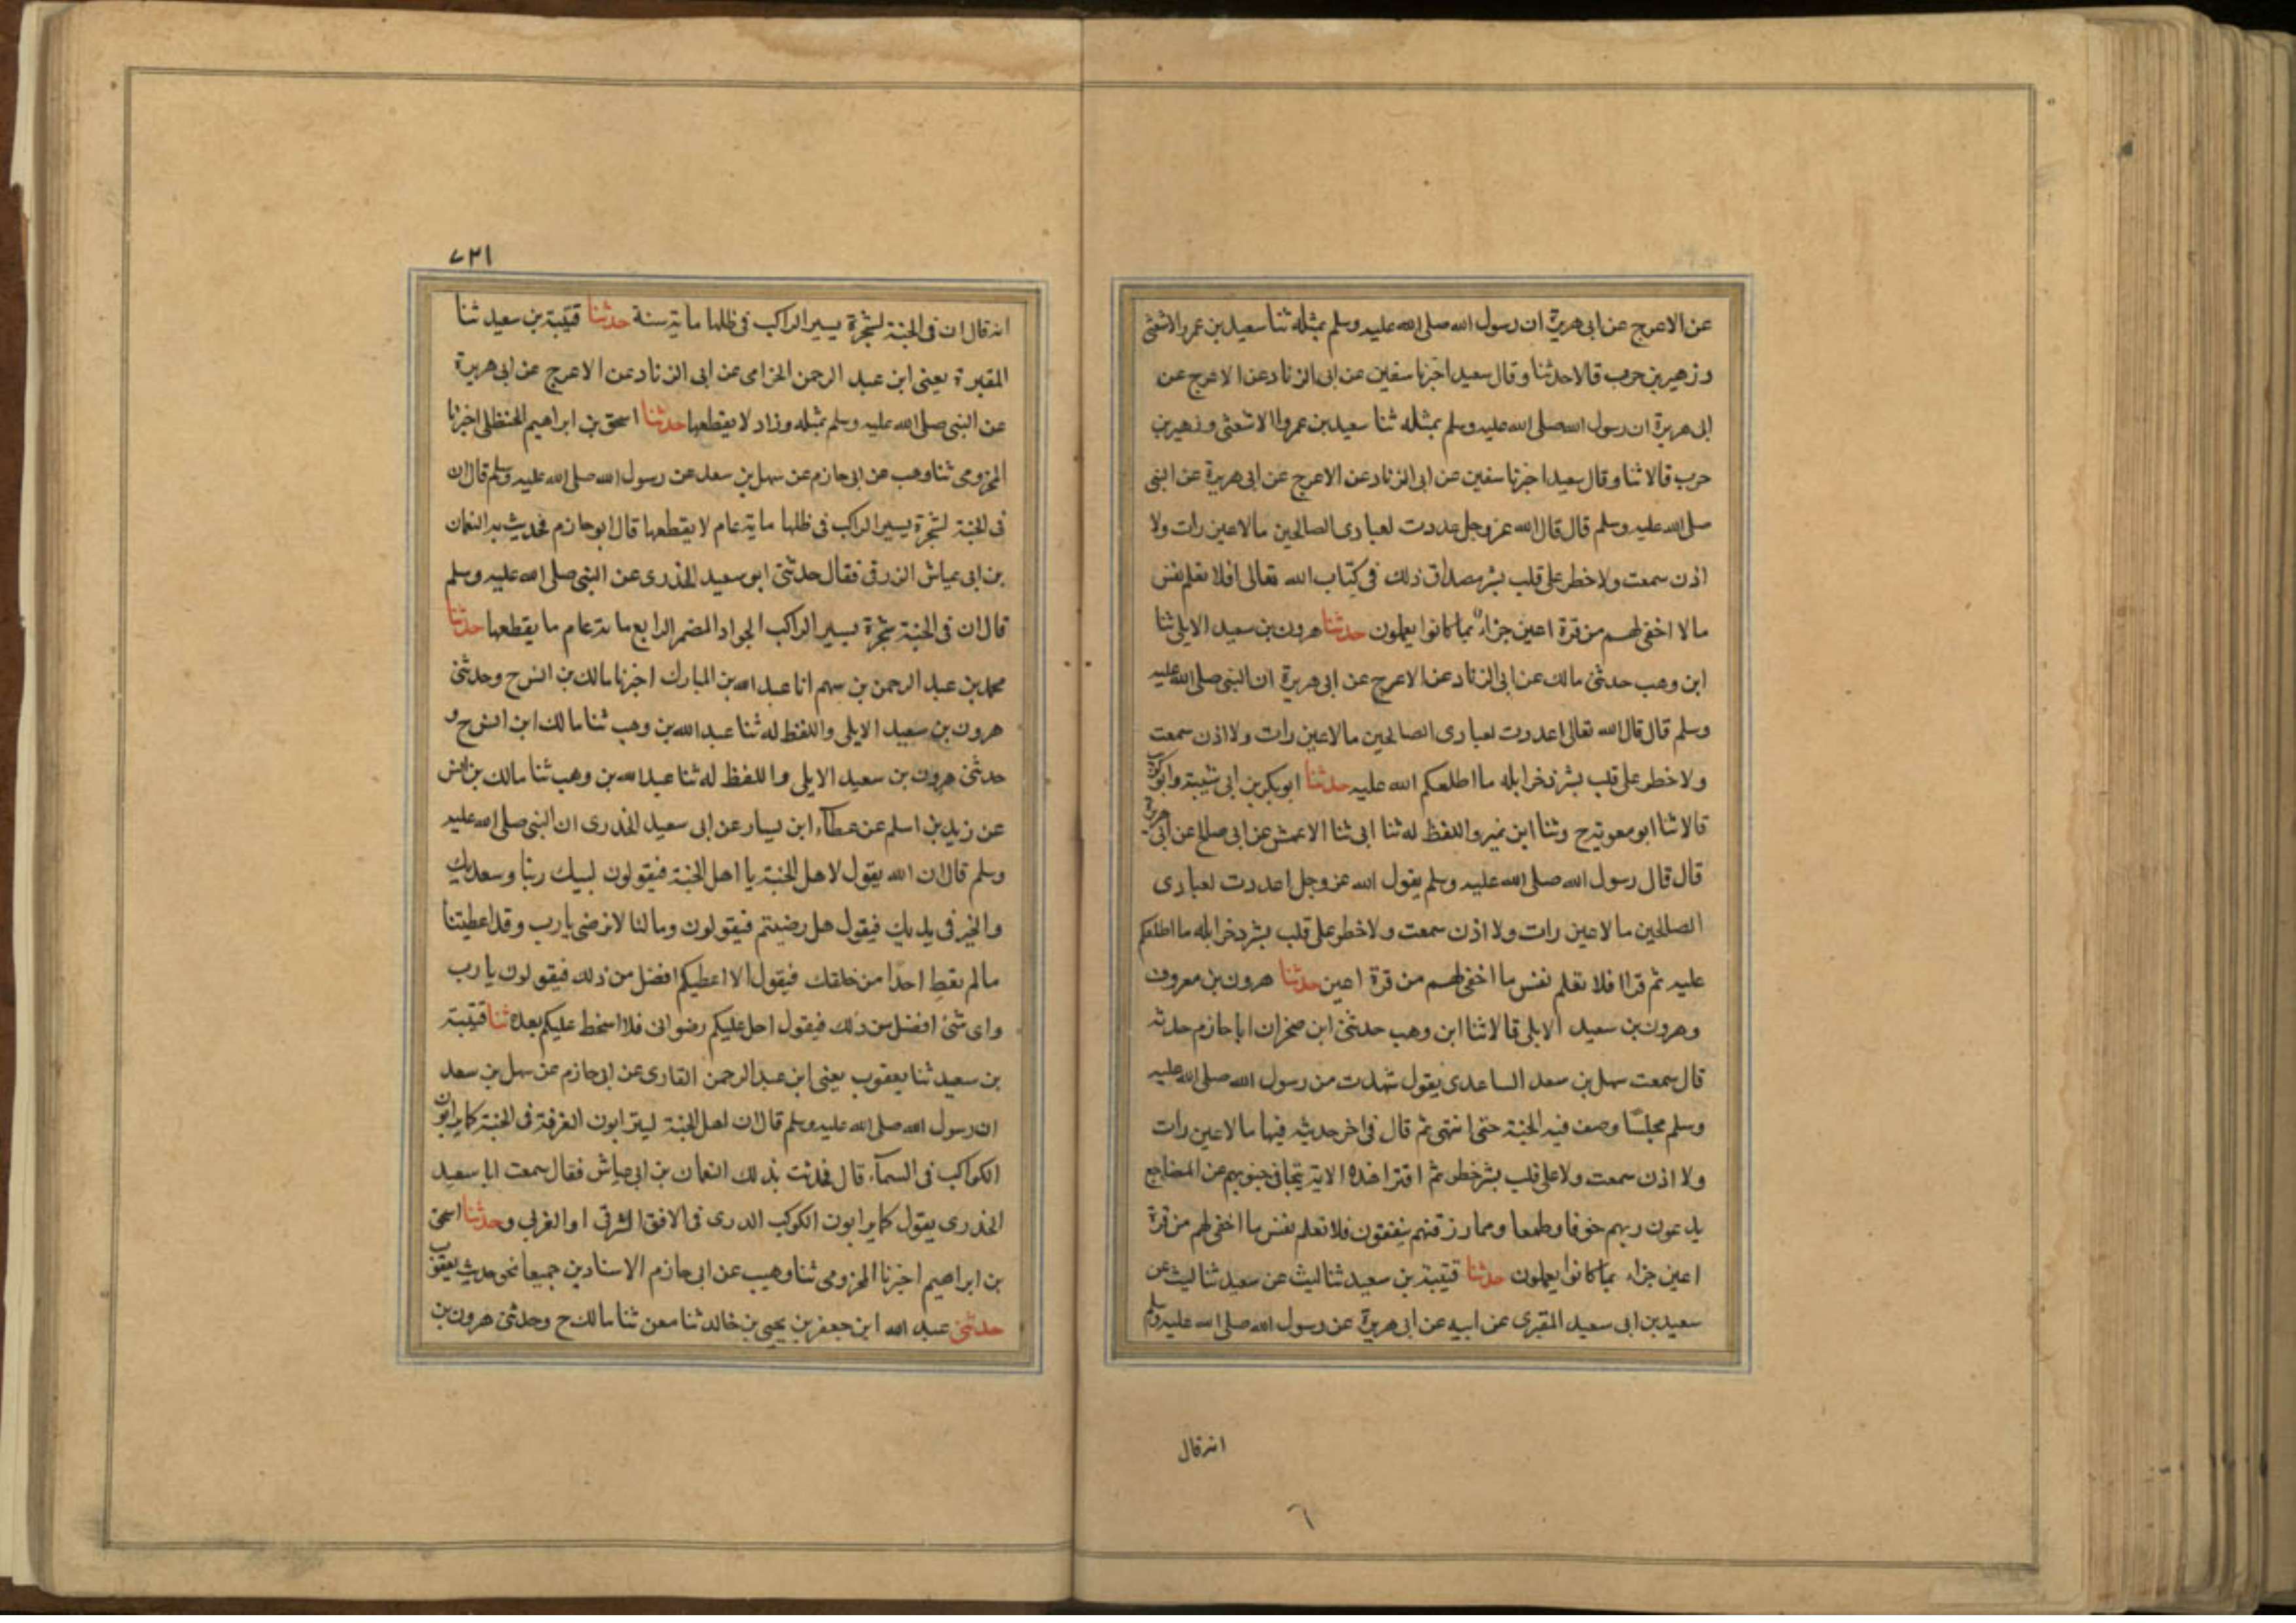 عن الاعرج عن ابى هريرة ان رسول الله صلى الله عليه وسلم بمثله ثنا سعيد بن عمرو الاشعثى
و زهير بن حرب قالا حدثنا و قال سعيد اخبرنا سفين عن ابى الزناد عن الاعرج عن
ابى هريرة ان رسول الله صلى الله عليه وسلم بمثله ثنا سعيد بن عمروا الاشعثى و زهير بن
حرب قالا ثنا و قال سعيد اخبرنا سفين عن ابى الزناد عن الاعرج عن ابى هريرة عن النبى
صلى الله عليه وسلم قال قال الله عز وجل عددت لعبادى الصالحين مالا عين رات ولا
اذن سمعت ولا خطر على قلب بشر مصداق ذلك فى كتاب الله تعالى افلا تعلم نفس
مالا اخفى لهم من قرة اعين جزاءً بما كانوا يعملون حدثنا هرون بن سعيد الايلى ثنا
ابن وهب حدثنى مالك عن ابى الزناد عن الاعرج عن ابى هريرة ان النبى صلى الله عليه
وسلم قال قال الله تعالى اعددت لعبادى الصالحين مالا عين رات ولا اذن سمعت
ولا خطر على قلب بشر ذخرا بله ما اطلعكم الله عليه حدثنا ابو بكر بن ابى شيبة وابو كريب
قالا ثنا ابو معوية ح وثنا ابن نمير واللفظ له ثنا ابى ثنا الاعمش عن ابى صالح عن ابى هريرة
قال قال رسول الله صلى الله عليه وسلم يقول الله عز وجل اعددت لعبادى
الصالحين مالا عين رات ولا اذن سمعت ولا خطر على قلب بشر ذخرا بله ما اطلعكم
عليه ثم قرا فلا تعلم نفس ما اخفى لهم من قرة اعين حدثنا هرون بن معروف
وهرون بن سعيد الايلى قالا ثنا ابن وهب حدثنى ابن صخر ان ابا حازم حدثه
قال سمعت سهل بن سعد الساعدى يقول شهدت من رسول الله صلى الله عليه
وسلم مجلسًا وصف فيه الجنة حتى انتهى ثم قال فى اخر حديثه فيها مالا عين رات
ولا اذن سمعت ولا على قلب بشر خطر ثم اقترا هذه الاية تتجافى جنوبهم عن المضاجع
يدعون ربهم خوفا وطمعا ومما رزقنهم ينفقون فلا تعلم نفس ما اخفى لهم من قرة
اعين جزاء بما كانوا يعملون حدثنا قتيبة بن سعيد ثنا ليث عن سعيد ثنا ليث عن
سعيد بن ابى سعيد المقبرى عن ابيه عن ابى هريرة عن رسول الله صلى الله عليه وسلم
انه قال
٧٣١
انه قال ان فى الجنة لشجرة يسير الراكب فى ظلها ماية سنة حدثنا قتيبة بن سعيد ثنا
المغيرة يعنى ابن عبد الرحمن الحزامى عن ابى الزناد عن الاعرج عن ابى هريرة
عن النبى صلى الله عليه وسلم بمثله وزاد لا يقطعها حدثنا اسحق بن ابراهيم الحنظلى اخبرنا
المخزومى ثنا وهب عن ابى حازم عن سهل بن سعد عن رسول الله صلى الله عليه وسلم قال ان
فى الجنة لشجرة يسير الراكب فى ظلها ماية عام لا يقطعها قال ابو حازم فحديث به النعمان
بن ابى عياش الزرقى فقال حدثنى ابو سعيد الخدرى عن النبى صلى الله عليه وسلم
قال ان فى الجنة شجرة يسير الراكب الجواد المضمر الرابع ماية عام ما يقطعها حدثنا
محمد بن عبد الرحمن بن سهم انا عبد الله بن المبارك اخبرنا مالك بن انس ح وحدثنى
هرون بن سعيد الايلى واللفظ له ثنا عبد الله بن وهب ثنا مالك ابن انس ح و
حدثنى هرون بن سعيد الايلى واللفظ له ثنا عبد الله بن وهب ثنا مالك بن انس
عن زيد بن اسلم عن عطآء ابن يسار عن ابى سعيد الخدرى ان النبى صلى الله عليه
وسلم قال ان الله يقول لاهل الجنة يا اهل الجنة فيقولون لبيك ربنا وسعديك
والخير فى يديك فيقول هل رضيتم فيقولون ومالنا لا نرضى يا رب وقد اعطيتنا
مالم تعط احدًا من خلقك فيقول الا اعطيكم افضل من ذلك فيقولون يا رب
واى شئ افضل من ذلك فيقول احل عليكم رضوانى فلا اسخط عليكم بعده ثنا قتيبة
بن سعيد ثنا يعقوب يعنى ابن عبد الرحمن القارى عن ابى حازم عن سهل بن سعد
ان رسول الله صلى الله عليه وسلم قال ان اهل الجنة ليترابون الغرفة فى الجنة كما يرابون
الكواكب فى السمآء قال فحدثت بذلك النعمان بن ابى عياش فقال سمعت ابا سعيد
الخدرى يقول كما يرابون الكوكب الدرى فى الافق الشرقى او الغربى وحدثنا اسحق
بن ابراهيم اخبرنا المخزومى ثنا وهيب عن ابى حازم الاسنادين جميعا نحو حديث يعقوب
حدثنى عبد الله ابن جعفر بن يحيى بن خالد ثنا معن ثنا مالك ح وحدثنى هرون بن